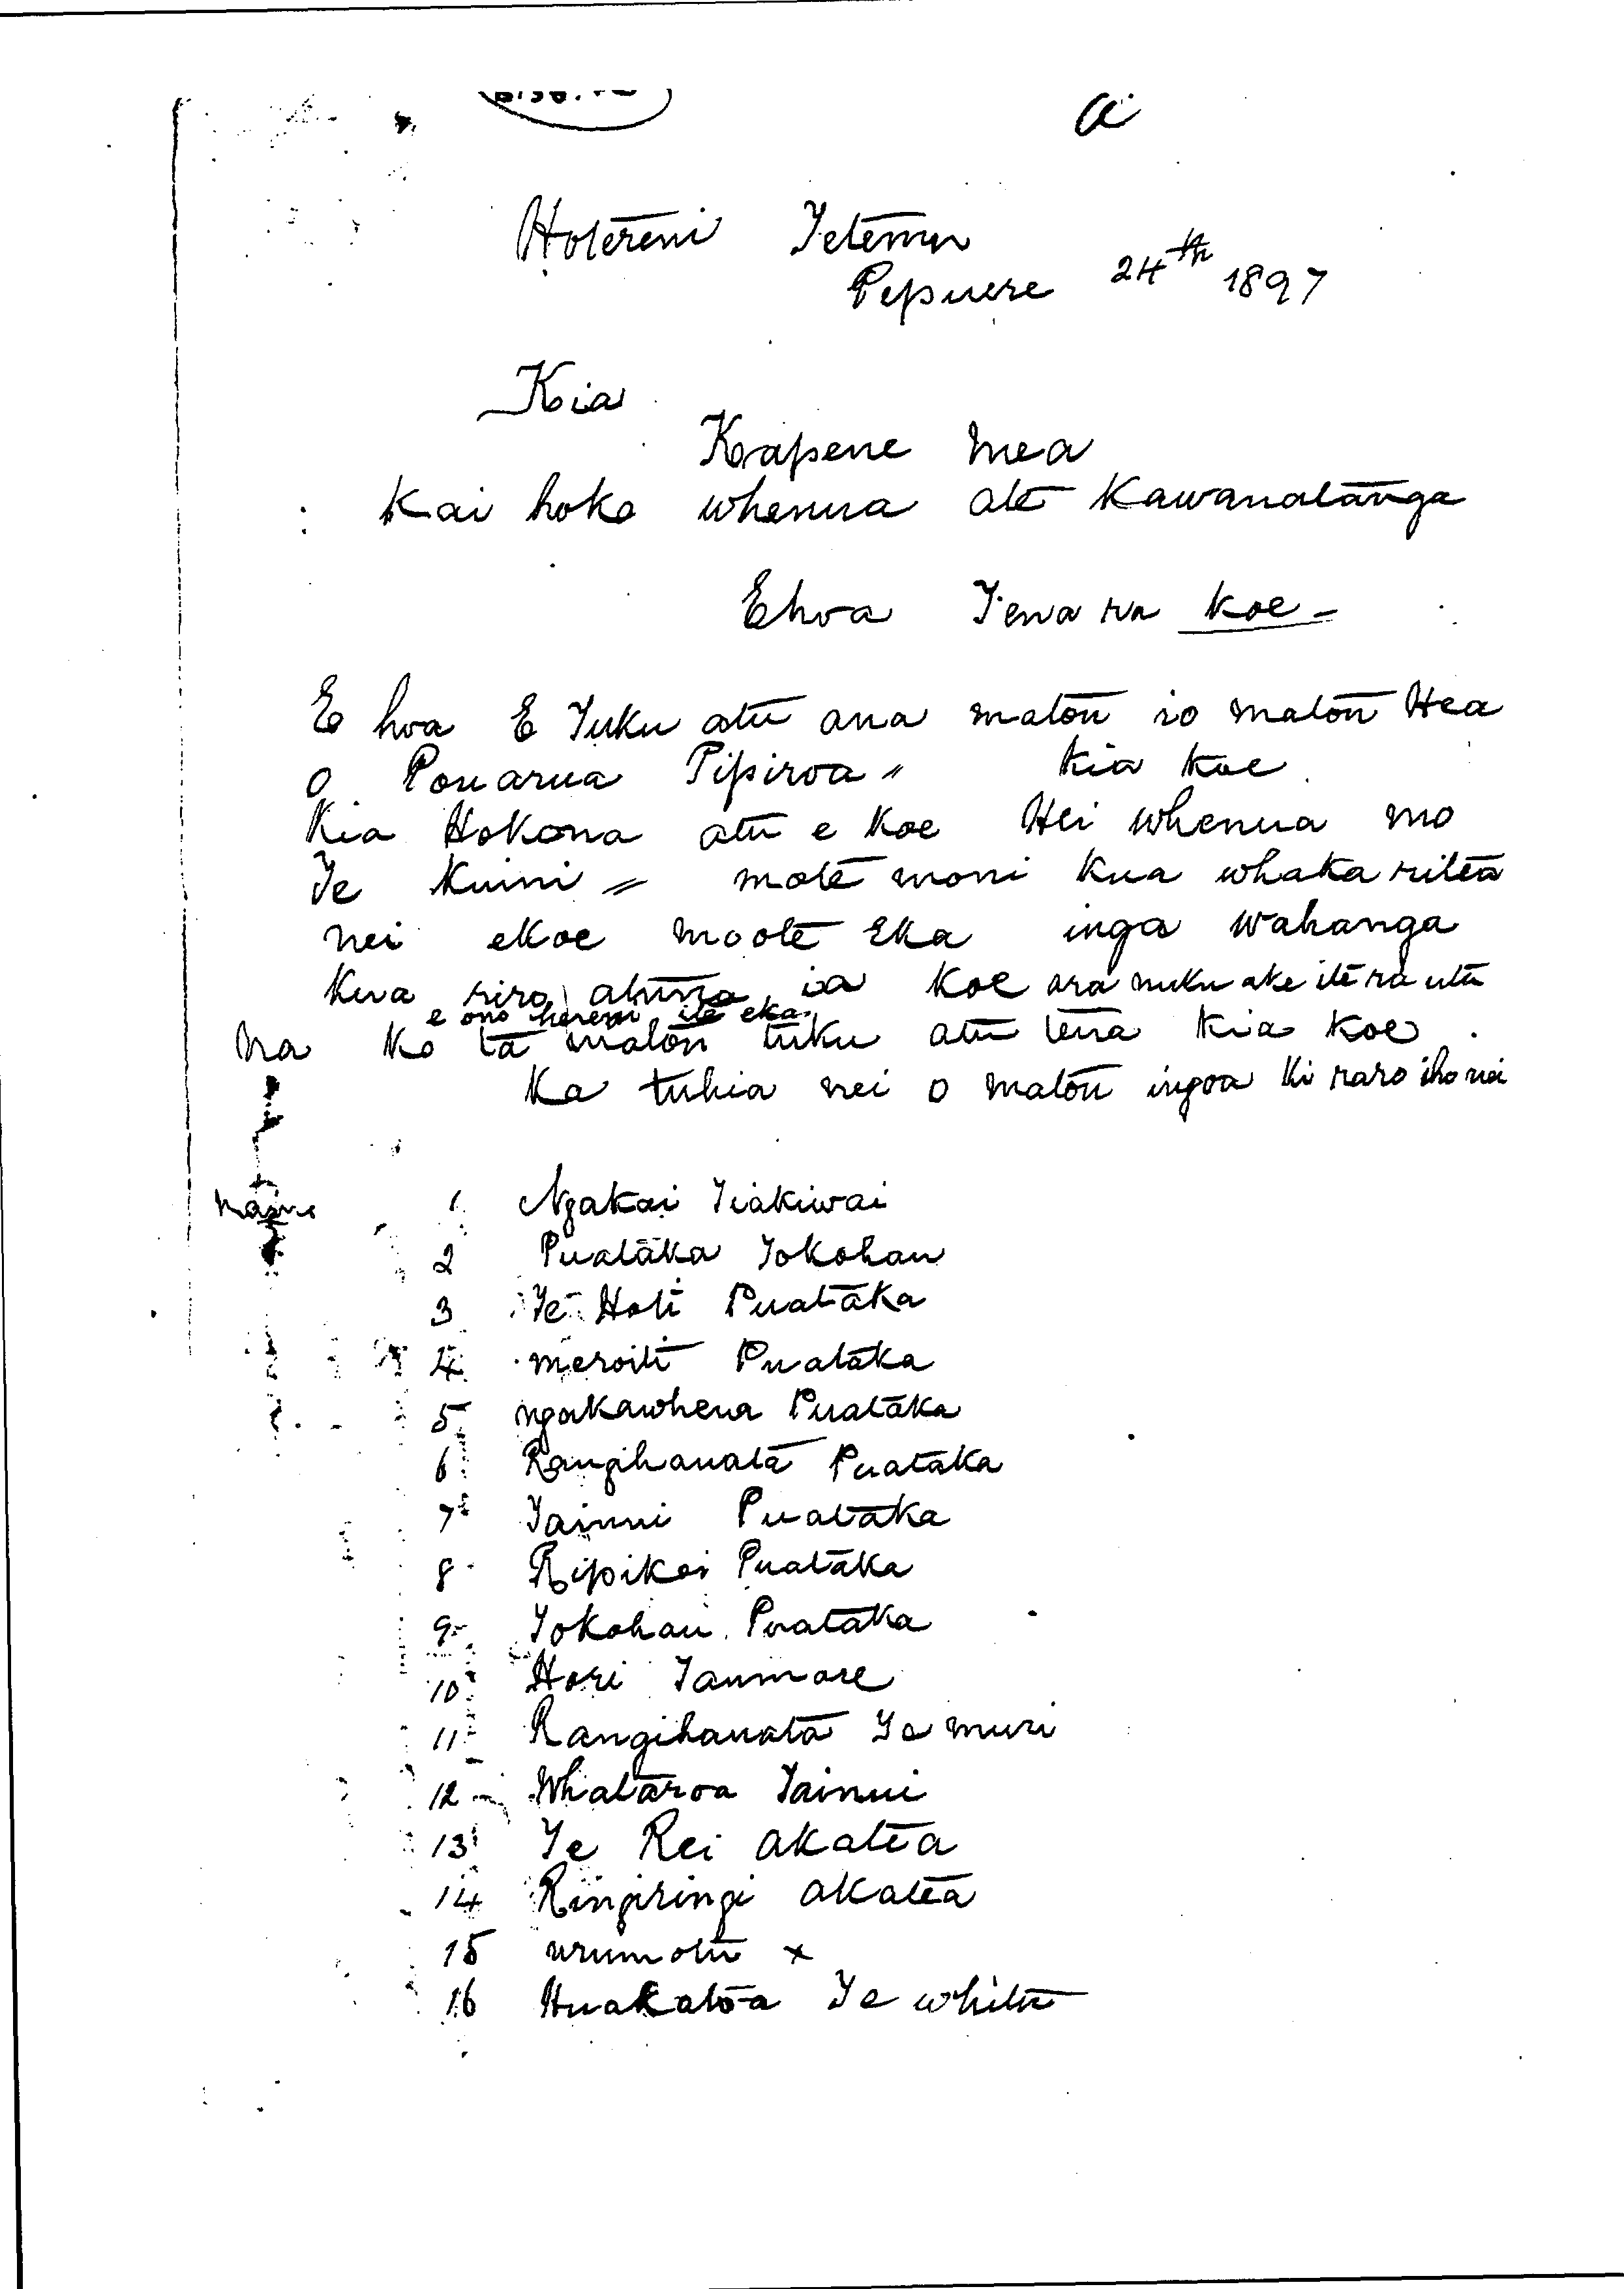 a
Hotereni Tetemu
Pepuere 24th 1897
Kia
Kapene mea
Kai hoko whenua ate Kawanatanga
Ehoa Tena ra koe -
E hoa E Tuku atu ana matou io matou Hea
o Pouarua Pipiroa " kia koe
Kia Hokona atu e koe Hei whenua mo
Te Kuini = mote moni kua whaka ritea
nei ekoe moote Eka inga wahanga
Kua riro atuna ia koe ara nuku ake ite ra utu
e ono hereni ite eka
Na Ko ta matou tuku atu tena kia koe.
Ka tuhia nei o matou ingoa ki raro iho nei
1 Ngakai Tiakiwai
2 Puataka Tokohau
3 Te Hoti Puataka
4 meroiti Puataka
5 ngakawhena Puataka
6 Rangihauata Puataka
7 Tainui Puataka
8 Ripikoi Puataka
9 Tokohau Puataka
10 Hori Taumare
11 Rangihauata Te muri
12 Whataroa Tainui
13 Te Rei akatea
14 Ringiringi akatea
15 urumotu x
16 Huakatoa Te whitu